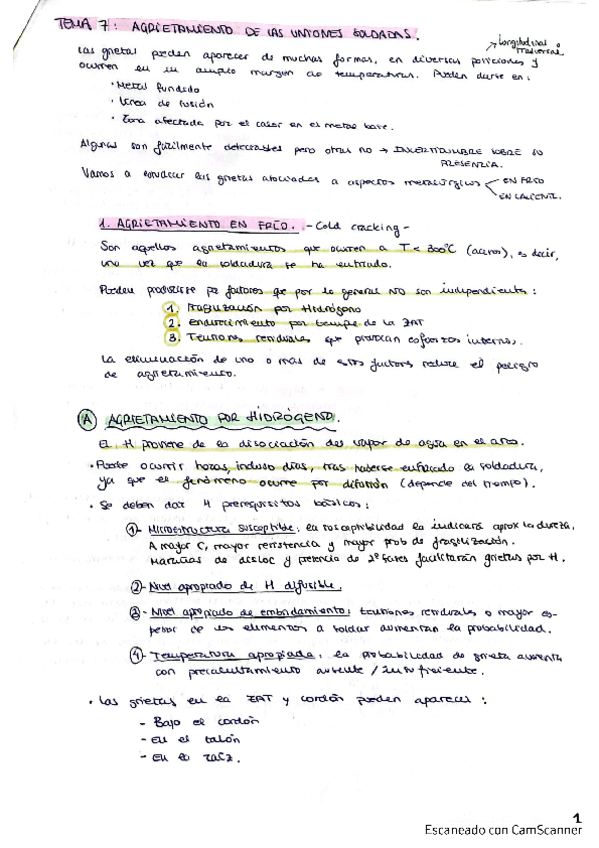 TEMA 7: AGRIETAMIENTO DE LAS UNIONES SOLDADAS.
Longitudinal
Transversal
Las grietas pueden aparecer de muchas formas, en diversas posiciones y
ocurren en un amplio margen de temperaturas. Pueden darse en:
· Metal fundido
· Línea de fusión
· Zona afectada por el calor en el metal base.
Algunas son fácilmente detectables pero otras no → INCERTIDUMBRE SOBRE SU
PRESENCIA.
Vamos a estudiar las grietas asociadas a aspectos metalúrgicos
EN FRÍO
EN CALIENTE.
1. AGRIETAMIENTO EN FRÍO. - Cold cracking -
Son aquellos agrietamientos que ocurren a T < 300°C (aceros), es decir,
una vez que la soldadura se ha enfriado.
Pueden producirse por factores que por lo general NO son independientes:
1. Fragilización por Hidrógeno
2. Endurecimiento por temple de la ZAT
3. Tensiones residuales que provocan esfuerzos internos.
La eliminación de uno o más de estos factores reduce el peligro
de agrietamiento.
A AGRIETAMIENTO POR HIDRÓGENO.
El H proviene de la disociación del vapor de agua en el arco.
· Puede ocurrir horas, incluso días, tras haberse enfriado la soldadura,
ya que el fenómeno ocurre por difusión (depende del tiempo).
· Se deben dar 4 prerequisitos básicos:
1- Microestructura susceptible: la susceptibilidad la indicará aprox la dureza.
A mayor C, mayor resistencia y mayor prob de fragilización.
Marañas de disloc y presencia de 2ª fases facilitarán grietas por H.
2- Nivel apropiado de H difusible.
3- Nivel apropiado de embridamiento: tensiones residuales o mayor es-
pesor de los elementos a soldar aumentan la probabilidad.
4- Temperatura apropiada: la probabilidad de grieta aumenta
con precalentamiento ausente / insuficiente.
· Las grietas en la ZAT y cordón pueden aparecer:
- Bajo el cordón
- En el talón
- En la raíz.
1
Escaneado con CamScanner